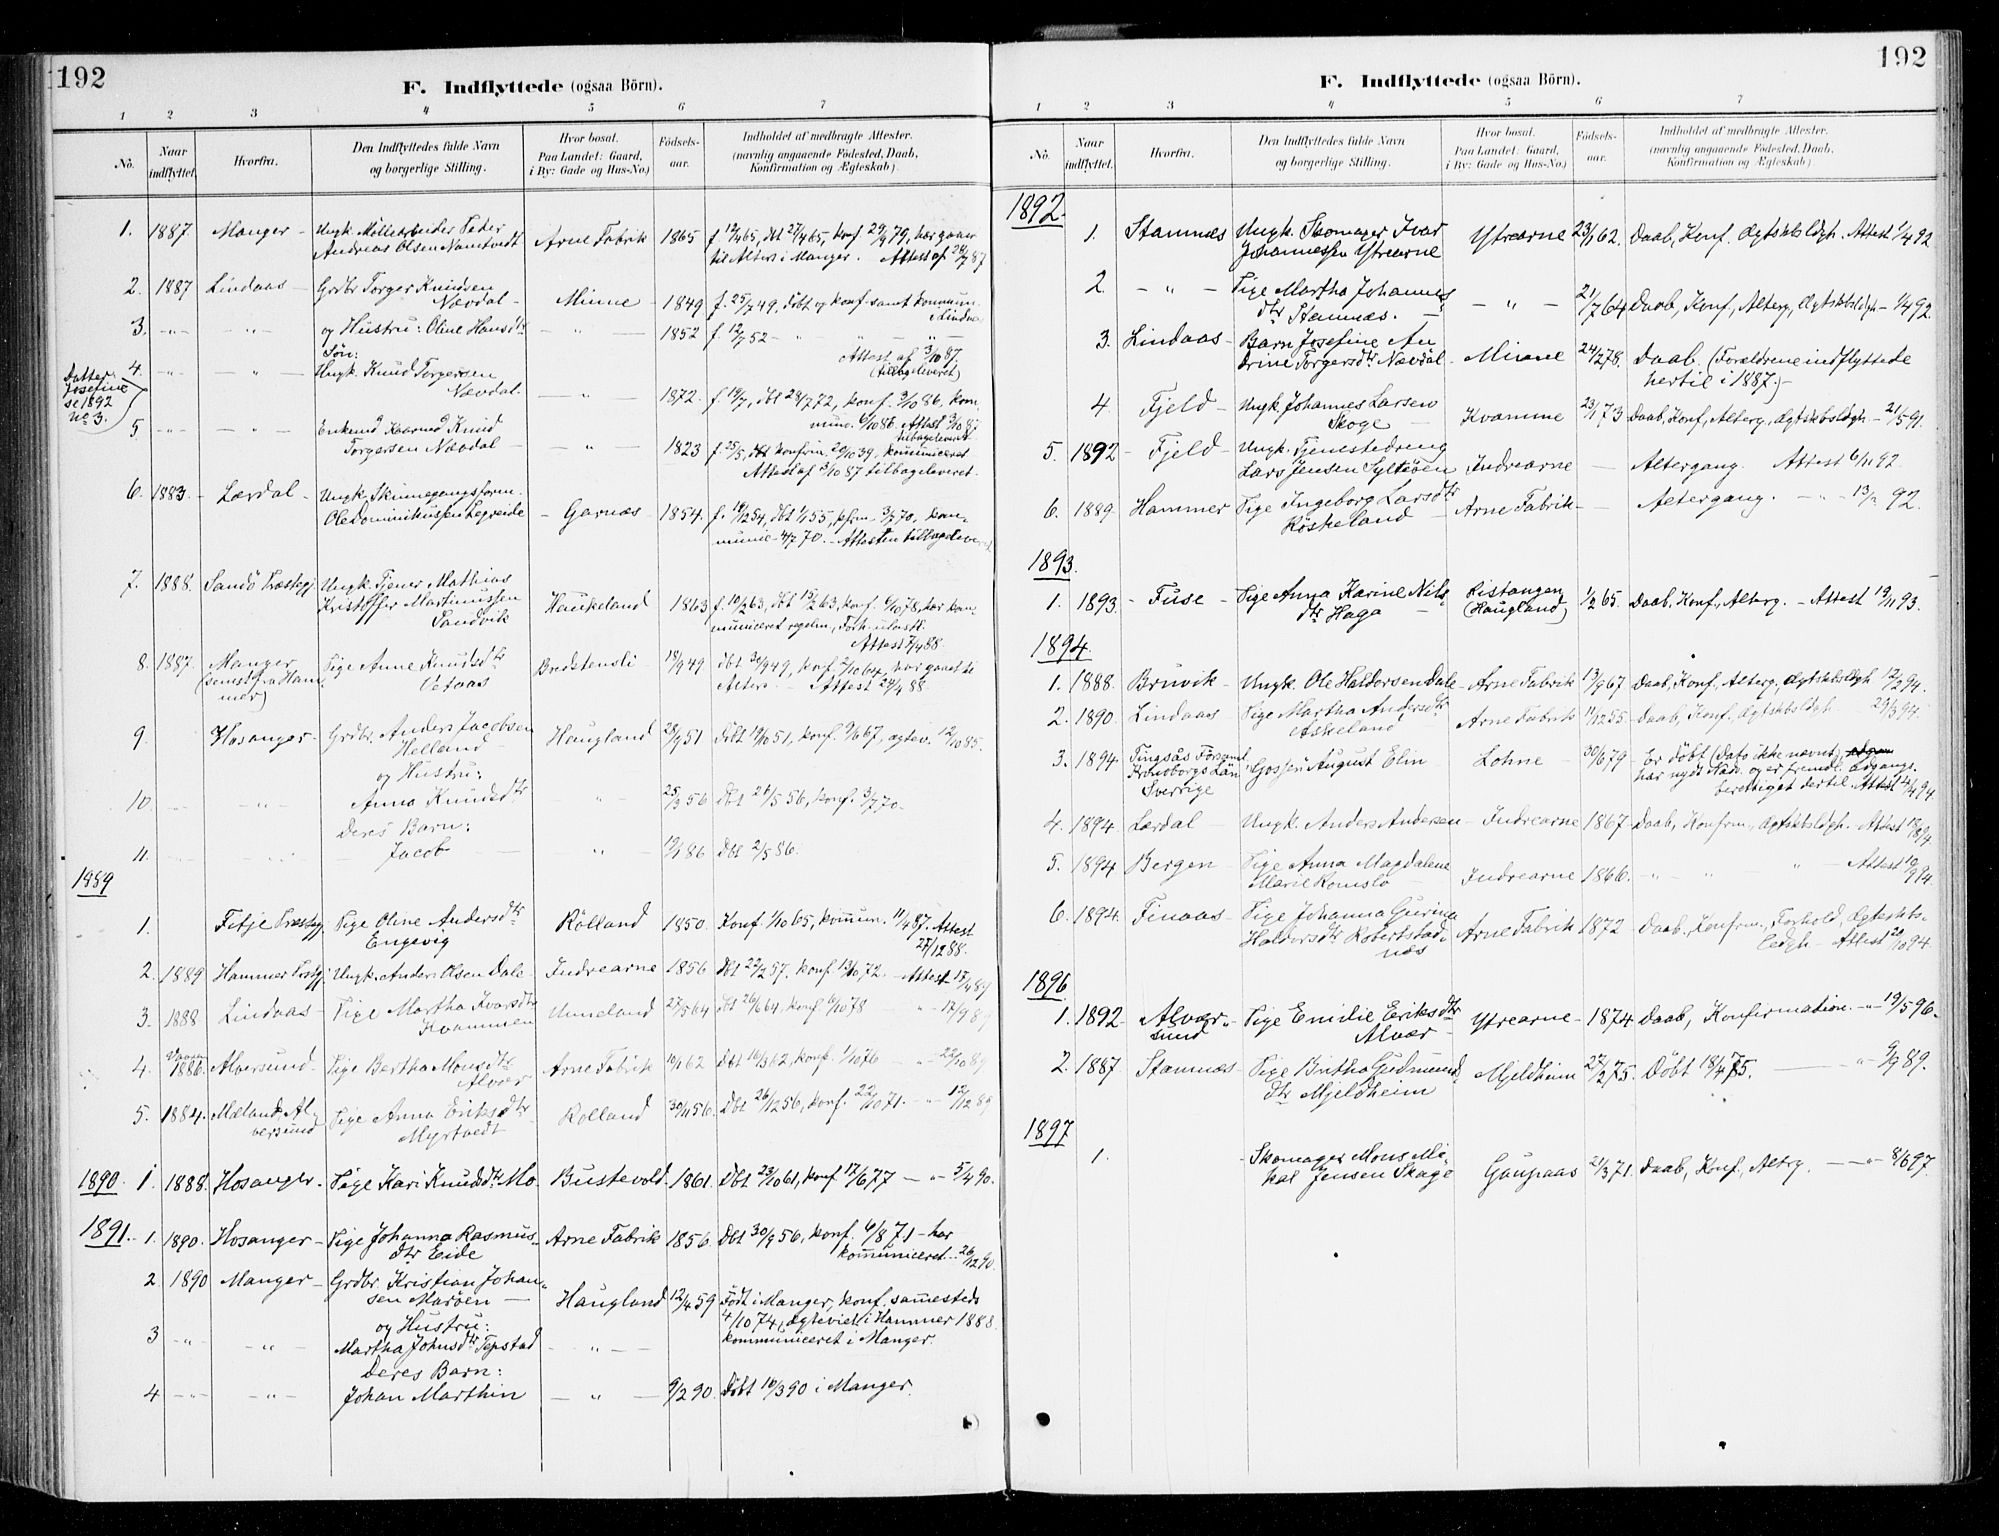 192
F. Indflyttede (ogsaa Börn).
1 2 3 4 5 6 7
No. Naar indflyttet. Hvorfra. Den Indflyttedes fulde Navn og borgerlige Stilling. Hvor bosat. Paa Landet: Gaard, i By: Gade og Hus-No.) Fødsels-aar. Indholdet af medbragte Attester. (navnlig angaaende Födested, Daab, Konfirmation og Ægteskab)
1. 1887 Manger - Ungk. Möllearbeider Peder Arne Fabrik 1865 f. 12/4 65, dbt 27/4 65, konf
Andreas Olsen Namtvedt til Alters i Manger. Attest af
2. 1887 Lindaas - Grdbr Torger Knudsen
Nævdal - Minne - 1849 f. 25/7 49, döbt og konf. samt kommun.
3. -"- -"- og Hustru: Oline Hansdtr - " - 1852 f. 12/7 52 -
Sön: Attest af 3/10 87.
4. -"- -"- Ungk. Knud Torgersen (tilbageleveret)
Nævdal. - " - 1872. f. 19/7, dbt 28/7 72, konf. 3/10 86, kom
Datter Josefine se 1892 No 3.
mun. 6/10 86. Attest 3/10 87
5 -"- -"- Enkemd Knud tilbageleveret
Torgersen Nævdal - " - 1823 f. 25/5, dbt konfirm. 20/10 39, kommuniceret
Attest af 3/10 87 tilbageleveret.
6. 1883. - Lærdal - Ungk. Skinnegangsform.
Ole Dominikussen Legreide - Garnæs - 1854. f. 19/12 54, dbt 1/1 55, kfrm. 3/7 70, kom-
munic. 4/7 70. - Attesten tilbageleveret
7. 1888. Sandö Præstegj Ungk. Tjener Mathias
Kristoffer Martinussen Haukeland 1863 f. 10/2 63, dbt 15/2 63, konf. 6/10 78, har kom
Sandvik municeret regelm.,
Attest 7/4 88.
8. 1887. Manger Pige Anne Knudsdtr Bredstensli - 18/9 49 dbt 30/9 49, konf. 2/10 64, har gaaet til
(senest fra Hammer) Vetaas Alters. - Attest 24/4 88.
9. Hosanger - Grdbr. Anders Jacobsen Haugland 28/9 51 Döbt 19/10 51, konf. 9/6 67, ægtev. 12/10 85.
Helland
og Hustru:
10. " Anna Knudsdtr " 25/3 56 Dbt 26/5 56, konf. 3/7 70.
Deres Barn:
11. Jacob " 19/4 86 Dbt 2/5 86.
1889
1. Fitje Præstegj. Pige Oline Andersdtr Rölland 1850. Konf. 1/10 65, kommun. 11/4 87. Attest
Engevig 27/12 88.
2. 1889 Hammer Prstgj. Ungk. Anders Olsen Dale - Indrearne 1856 Dbt 22/2 57. konf. 13/10 72. - Attest 15/4 89
3. 1888 Lindaas - Pige Martha Ivarsdtr Unneland 27/5 64 dbt 26/6 64, konf. 6/10 78 " 12/9 89
Kvammen
4. 1886. Alversund. Pige Bertha Monsdtr Arne Fabrik 10/1 62 Dbt 16/3 62, konf. 1/10 76 - " - 22/10 89
Alvær
5. 1884. Mæland, Al- Pige Anna Eriksdtr Rolland 30/11 56. Dbt 26/12 56, konf. 22/10 71. - " 12/12 89
versund Myrtvedt
1890. 1. 1888. Hosanger. Pige Kari Knudsdtr Mo Bustevold 1861. Dbt 23/10 61, konf 17/6 77 - " - 5/4 90.
1891. - 1. 1890. Hosanger - Pige Johanna Rasmus- Arne Fabrik 1856. Dbt 30/9 56, konf. 6/8 71 - har
dtr Eide kommuniceret. 26/12 90.
2 1890 Manger - Grdbr. Kristian Johan-
sen Maröen Haugland 12/4 59 Födt i Manger, konf. sammesteds
og Hustru: 4/10 74, ægteviet i Hammer 1888.
3 -"- -"- Martha Johnsdtr Tepstad - " - kommuniceret i Manger.
Deres Barn:
4 -"- -"- Johan Marthin - " - 9/2 90. Döbt 16/3 90 i Manger.
192
F. Indflyttede (ogsaa Börn).
1 2 3 4 5 6 7
No. Naar indflyttet. Hvorfra. Den Indflyttedes fulde Navn og borgerlige Stilling. Hvor bosat. Paa Landet: Gaard, i By: Gade og Hus-No.) Födsels-aar. Indholdet af medbragte Attester. (navnlig angaaende Födested, Daab, Konfirmation og Ægteskab)
1892.
1. Stamnæs Ungk. Skomager Ivar Ytrearne 23/1 62. Daab, Konf. Ægtskbsldgh. Attest 1/4 92
Johannessen Ytrearne
2. - " - Pige Martha Johannes
dtr Stamnæs. - " - 21/7 64 Daab, Konf., Alterg., Ægtskbsldgh - 1/4 92.
3. Lindaas - Barn Josefine An
drine Torgersdtr Nævdal - Minne 24/2 78. Daab. (Forældrene indflyttede
hertil i 1887.) -
4. Fjeld - Ungk. Johannes Larsen Kvamme 23/1 73 Daab, Konf., Alterg., Ægtskbsldgh. - 21/5 91.
Skoge
5. 1892 - Fjeld - Ungk. Tjenestedreng
Lars Jensen Syltöen Indrearne - Altergang. Attest 6/11 92.
6. 1889 Hammer Pige Ingeborg Larsdtr Arne Fabrik - Altergang. - " - 92.
Röskeland
1893.
1. 1893. - Fuse - Pige Anna Karine Nils Ristangen 1/2 65. Daab, Konf., Alterg. - Attest 19/11 93.
dtr Haga (Haugland)
1894.
1. 1888. Bruvik - Ungk. Ole Haldorsen Dale - Arne Fabrik 13/9 67 Daab, Konf., Alterg., Ægtskbsldgh 12/2 94.
2. 1890. Lindaas - Pige Martha Andersdtr Arne Fabrik 11/12 55. Daab, Konf., Ægtskbsldgh - 29/3 94.
Askeland
3. 1894. Tingsås Församl. Gossen August Elin - Lohne - 30/6 79 - Er döbt (Dato ikke nævnt),
Kronobergs Län har nydt Nadv. og er fremdl. adgangs-
Sverrige berettiget dertil. Attest 4/4 94.
4. 1894. Lærdal - Ungk. Anders Andersen - Indrearne 1867 Daab, Konfrm., Ægtskbsldgh. - Attest 18/8 94
5. 1894 Bergen - Pige Anna Magdalene - Attest 10/9 84.
Marie Romslo - Indrearne 1866. - " - " - "
6. 1894. Finaas - Pige Johanna Gurina
Haldorsdtr Robertstad- Arne Fabrik 1872 - Daab, Konfrm., Forhold, Ægteskbs-
næs Ledgh - Attest 20/10 94.
1896
1. 1892 - Alvær- Pige Emilie Eriksdtr Ytrearne - 1874 Daab, Konfirmation. - " - 19/5 96.
sund Alvær -
2. 1887. Stamnæs - Pige Britha Gudmunds Mjeldheim 22/2 75. Döbt 18/4 75. - " 9/9 89.
dtr Mjeldheim
1897
1. - Skomager Mons Mi- Gaupaas 21/3 71. Daab, Konf., Altrg. - " - 8/6 97.
kal Jensen Skage